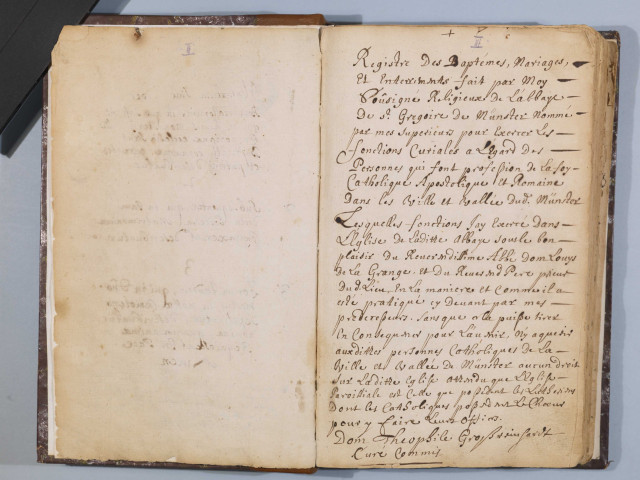 II
II
Registre Des Baptêmes, Mariages,
Et Enterrements fait par Moy
Soûsigné Religieux de L'abbaye
de st. Gregoire de Münster Nommé
par mes superieurs pour Exercer Les
fonctions Curiales a L'Egard des
Personnes qui font profession de La foy
Catholique Apostolique et Romaine
dans les Ville et Vallée dud. Münster
Lesquelles fonctions Jay Exercé dans
L'Eglise de Laditte Abbaye sous le bon
plaisir du Reverendissime Abbé dom Louys
de La Grange. et du Reverend Pere prieur
du d. Lieu, En La maniere et Comme il a
esté pratiqué cy devant par mes
predecesseurs. sans que cela puisse tirer
En Consequence pour L'avenir. Ny aquerir
auxdittes personnes Catholiques de La
Ville et Vallée de Münster aucun droit
sur Laditte Eglise attendu que L'Eglise
Paroissiale est Celle que possedent les Lutheriens
Dont les Catholiques possedent Le Choeur
pour y faire Leurs offices.
Dom Theophile
Curé Commis